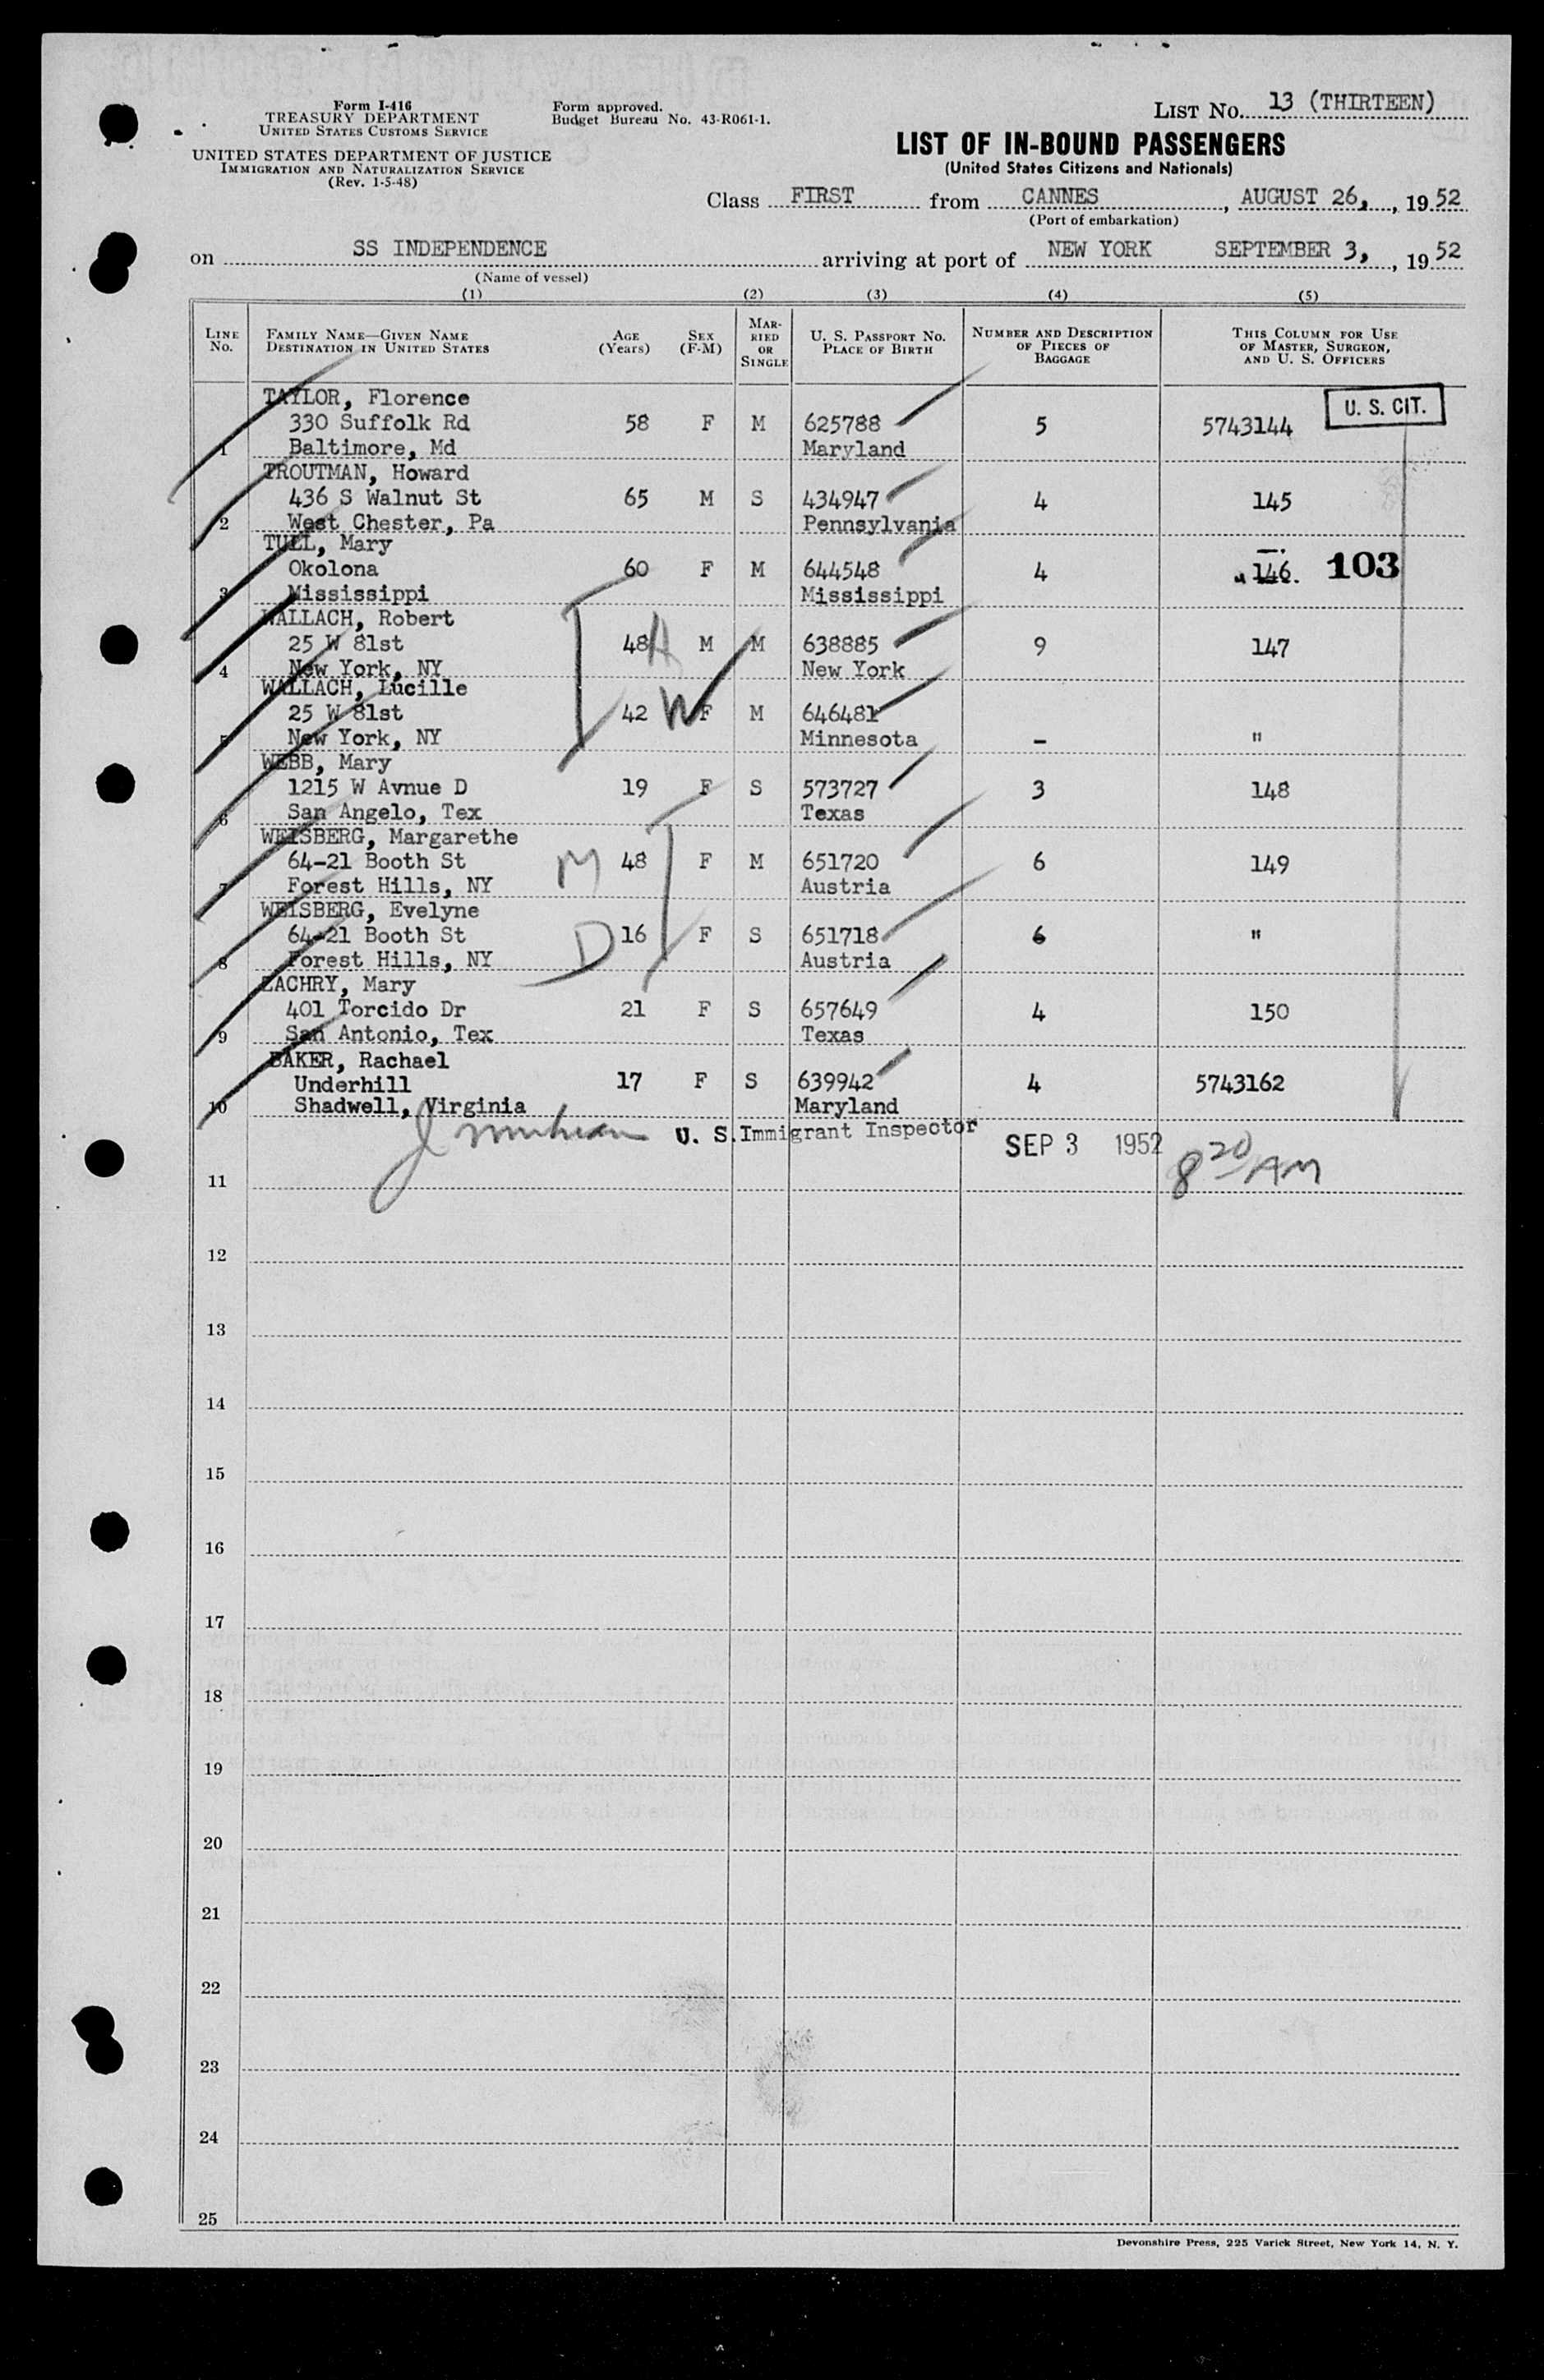 Form I-416
TREASURY DEPARTMENT
UNITED STATES CUSTOMS SERVICE
UNITED STATES DEPARTMENT OF JUSTICE
IMMIGRATION AND NATURALIZATION SERVICE
(Rev. 1-5-48)
Form approved.
Budget Bureau No. 43-R061-1.
LIST No. 13 (THIRTEEN)
LIST OF IN-BOUND PASSENGERS
(United States Citizens and Nationals)
Class FIRST from CANNES, AUGUST 26, 1952
(Port of embarkation)
on SS INDEPENDENCE arriving at port of NEW YORK SEPTEMBER 3, 1952
(Name of vessel)
(1) (2) (3) (4) (5)
LINE No. FAMILY NAME—GIVEN NAME DESTINATION IN UNITED STATES AGE (Years) SEX (F-M) MARRIED OR SINGLE U. S. PASSPORT NO. PLACE OF BIRTH NUMBER AND DESCRIPTION OF PIECES OF BAGGAGE THIS COLUMN FOR USE OF MASTER, SURGEON, AND U. S. OFFICERS
U. S. CIT.
TAYLOR, Florence
330 Suffolk Rd 58 F M 625788 5 5743144
1 Baltimore, Md Maryland
TROUTMAN, Howard
436 S Walnut St 65 M S 434947 4 145
2 West Chester, Pa Pennsylvania
TULL, Mary
Okolona 60 F M 644548 4 146. 103
3 Mississippi Mississippi
WALLACH, Robert
25 W 81st 48 H M M 638885 9 147
4 New York, NY New York
WALLACH, Lucille
25 W 81st 42 W F M 646481
5 New York, NY Minnesota - "
WEBB, Mary
1215 W Avnue D 19 F S 573727 3 148
6 San Angelo, Tex Texas
WEISBERG, Margarethe
64-21 Booth St M 48 F M 651720 6 149
7 Forest Hills, NY Austria
WEISBERG, Evelyne
64-21 Booth St D 16 F S 651718 6 "
8 Forest Hills, NY Austria
ZACHRY, Mary
401 Torcido Dr 21 F S 657649 4 150
9 San Antonio, Tex Texas
BAKER, Rachael
Underhill 17 F S 639942 4 5743162
10 Shadwell, Virginia Maryland
U. S. Immigrant Inspector SEP 3 1952 8 20 AM
11
12
13
14
15
16
17
18
19
20
21
22
23
24
25
Devonshire Press, 225 Varick Street, New York 14, N. Y.